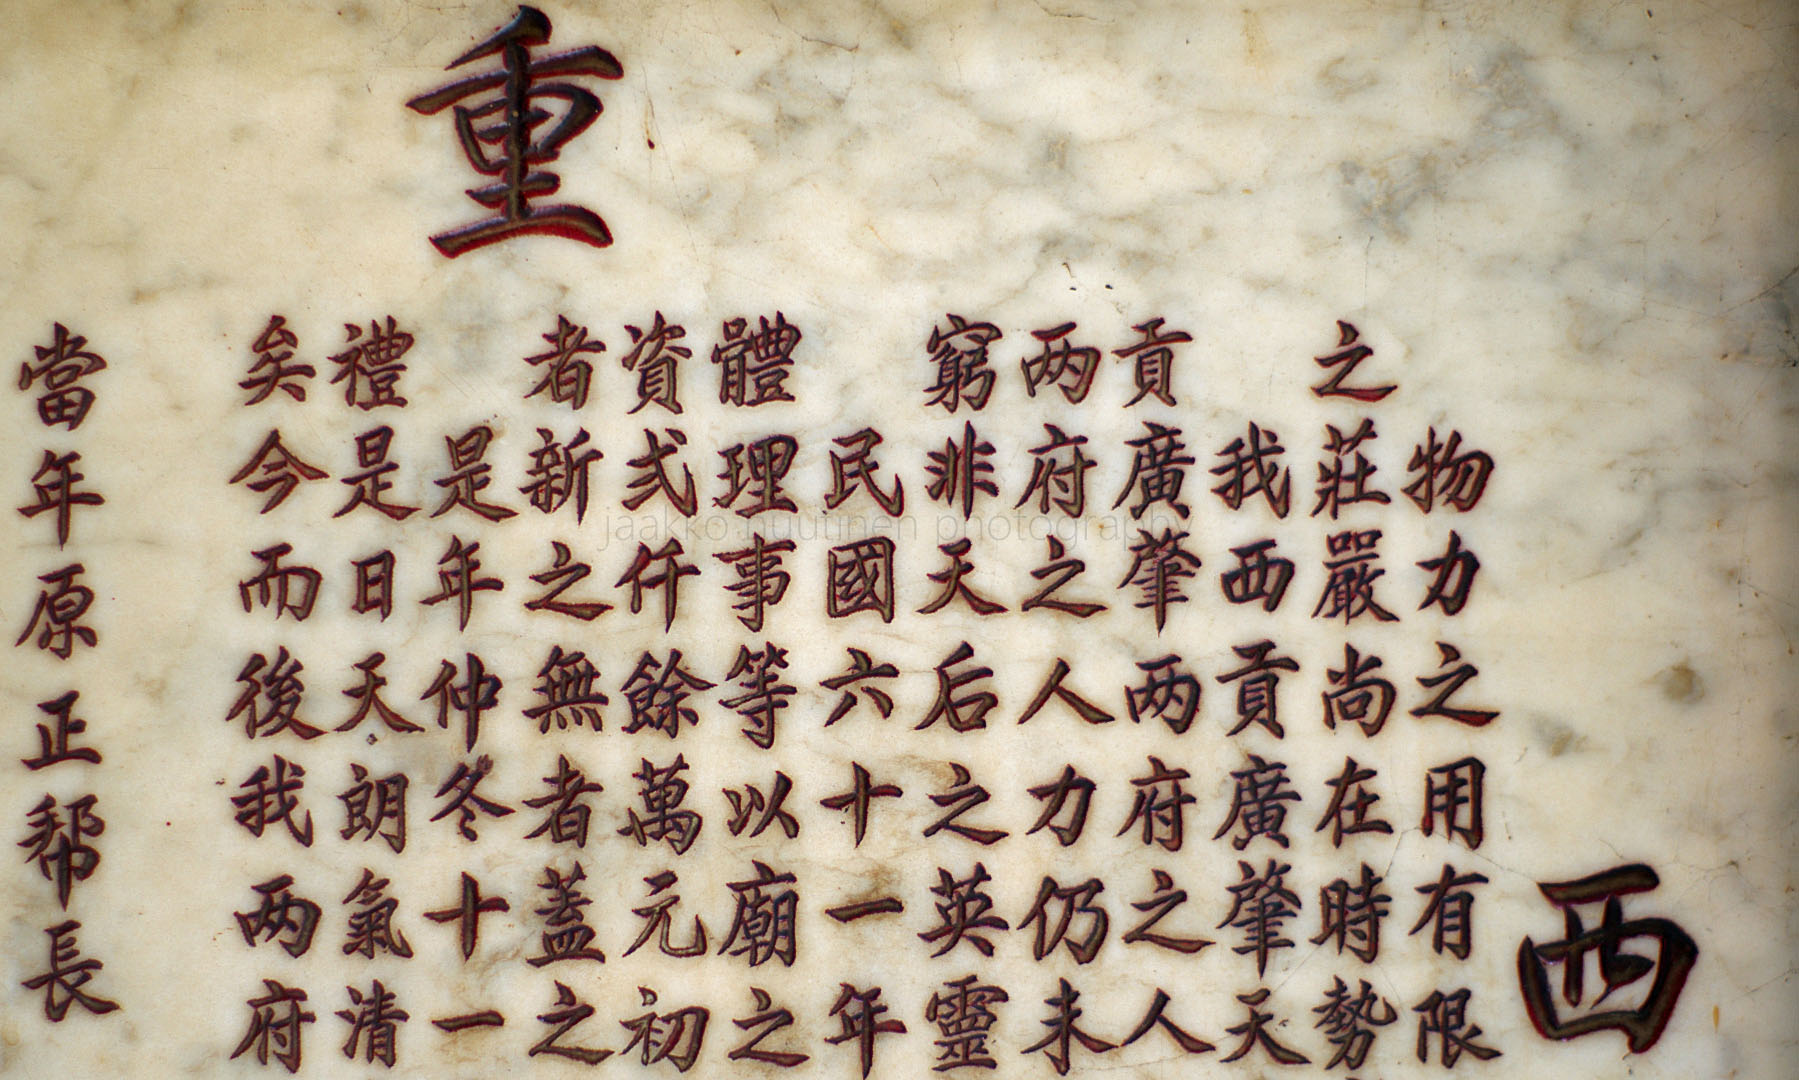 重
西
物力之用有限
之莊嚴尚在時勢
我西貢廣肇天
貢廣肇两府之人
两府之人力仍未
窮非天后之英靈
民國六十一年
體理事等以廟之
資弍仟餘萬元初
者新之無者蓋之
是年仲冬十一
禮是日天朗氣清
矣今而後我两府
當年原正帮長
jaakko nuutinen photography